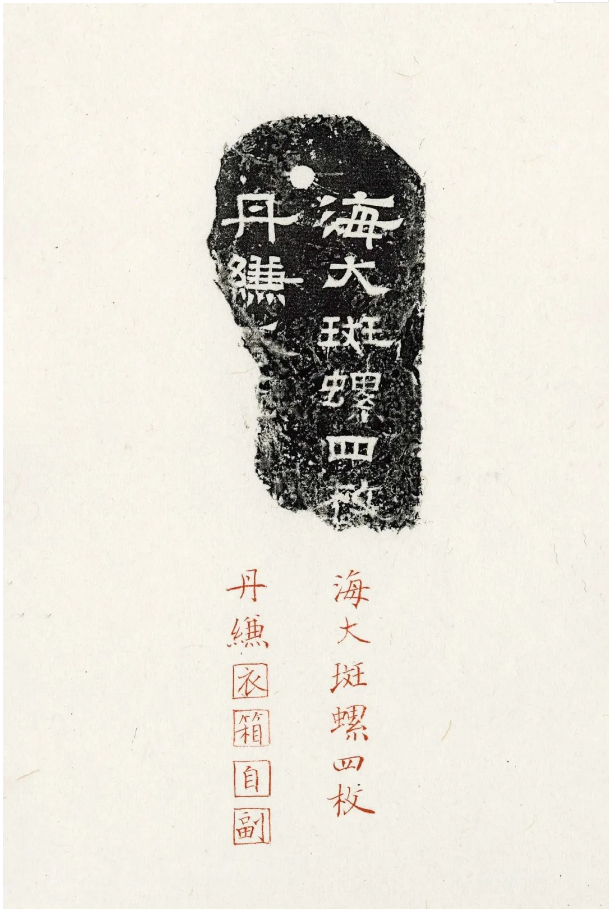 海大斑螺四枚
丹縑
海大斑螺四枚
丹縑衣箱自副